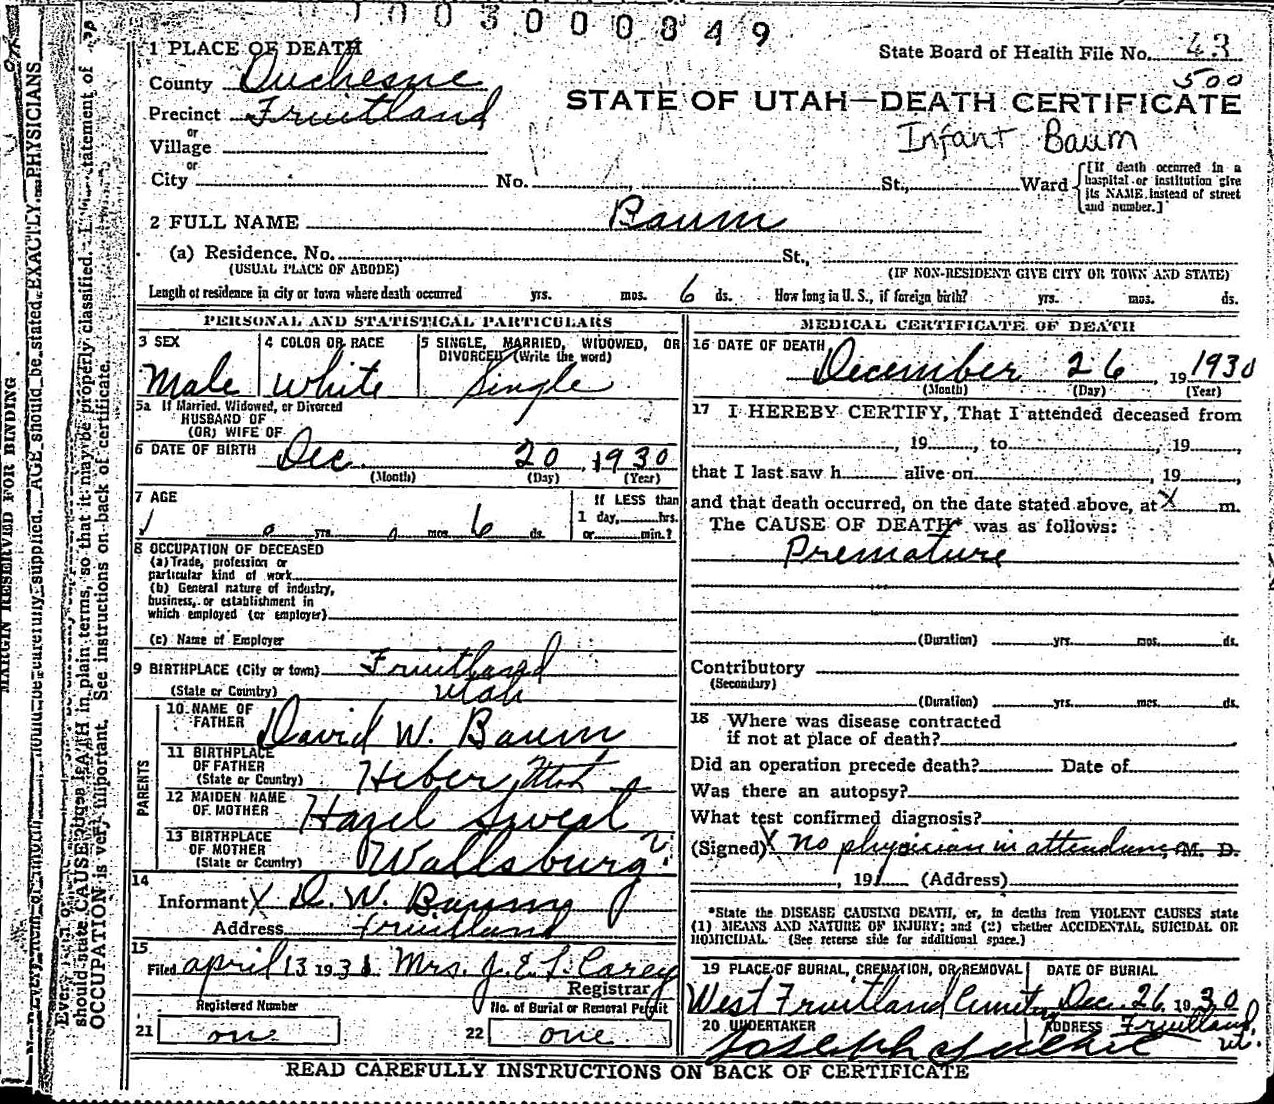 1003000849
1 PLACE OF DEATH
State Board of Health File No. 43
County Duchesne
500
STATE OF UTAH—DEATH CERTIFICATE
Precinct Fruitland
Infant Baum
or
Village
or
City No. St., Ward
[If death occurred in a hospital or institution give its NAME instead of street and number.]
2 FULL NAME Baum
(a) Residence, No. St.,
(USUAL PLACE OF ABODE) (IF NON-RESIDENT GIVE CITY OR TOWN AND STATE)
Length of residence in city or town where death occurred yrs. mos. 6 ds. How long in U. S., if foreign birth? yrs. mos. ds.
PERSONAL AND STATISTICAL PARTICULARS
3 SEX
Male
4 COLOR OR RACE
White
5 SINGLE, MARRIED, WIDOWED, OR
DIVORCED (Write the word)
Single
5a If Married, Widowed, or Divorced
HUSBAND OF
(OR) WIFE OF
6 DATE OF BIRTH Dec. 20, 1930
(Month) (Day) (Year)
7 AGE
0 yrs. 0 mos. 6 ds.
If LESS than
1 day, hrs.
or min.?
8 OCCUPATION OF DECEASED
(a) Trade, profession or
particular kind of work
(b) General nature of industry,
business, or establishment in
which employed (or employer)
(c) Name of Employer
9 BIRTHPLACE (City or town) Fruitland
(State or Country) Utah
PARENTS
10 NAME OF
FATHER David W. Baum
11 BIRTHPLACE
OF FATHER
(State or Country) Heber Utah
12 MAIDEN NAME
OF MOTHER Hazel Sweat
13 BIRTHPLACE
OF MOTHER
(State or Country) Wallsburg
14
Informant X D. W. Baum
Address Fruitland
15
Filed April 13 1931. Mrs. J. E. L. Carey
Registrar
Registered Number
21 one
No. of Burial or Removal Permit
22 one
MEDICAL CERTIFICATE OF DEATH
16 DATE OF DEATH
December 26, 19 1930
(Month) (Day) (Year)
17 I HEREBY CERTIFY, That I attended deceased from
, 19 , to , 19 ,
that I last saw h alive on , 19 ,
and that death occurred, on the date stated above, at X m.
The CAUSE OF DEATH* was as follows:
Premature
(Duration) yrs. mos. ds.
Contributory
(Secondary)
(Duration) yrs. mos. ds.
18 Where was disease contracted
if not at place of death?
Did an operation precede death? Date of
Was there an autopsy?
What test confirmed diagnosis?
(Signed) X No physician in attendance, M. D.
, 19 (Address)
*State the DISEASE CAUSING DEATH, or, in deaths from VIOLENT CAUSES state
(1) MEANS AND NATURE OF INJURY; and (2) whether ACCIDENTAL, SUICIDAL OR
HOMICIDAL. (See reverse side for additional space.)
19 PLACE OF BURIAL, CREMATION, OR REMOVAL
West Fruitland
DATE OF BURIAL
Dec. 26, 1930
20 UNDERTAKER
Joseph
ADDRESS Fruitland,
ut.
READ CAREFULLY INSTRUCTIONS ON BACK OF CERTIFICATE
MARGIN RESERVED FOR BINDING
carefully supplied. AGE should be stated EXACTLY. PHYSICIANS
should state CAUSE OF DEATH in plain terms, so that it may be properly classified. statement of
OCCUPATION is very important. See instructions on back of certificate.